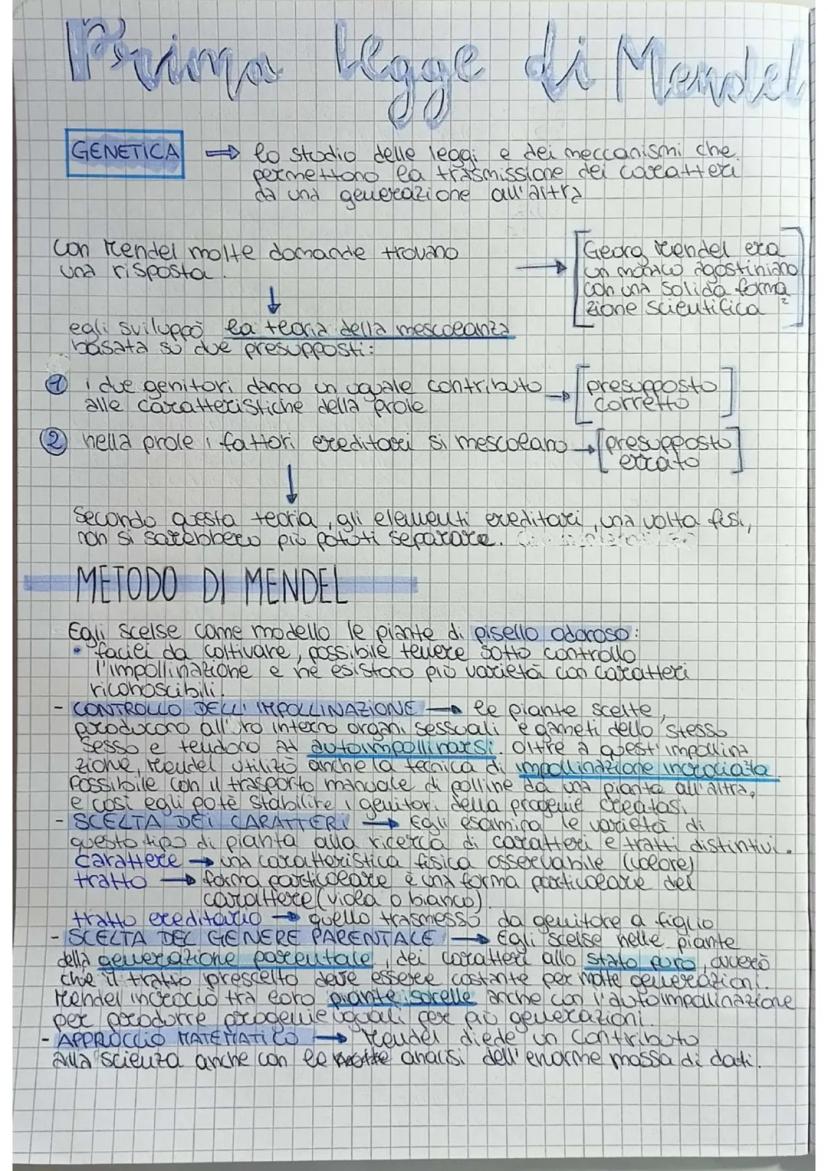 Prima legge di Mendel
GENETICA → lo studio delle leggi e dei meccanismi che
permettono la trasmissione dei caratteri
da una generazione all'altra
Con Mendel molte domande trovano
una risposta.
→ [Georg Mendel era
un monaco agostiniano
con una solida forma
zione scientifica]
↓
egli sviluppò la teoria della mescolanza
basata su due presupposti:
① i due genitori danno un uguale contributo
alle caratteristiche della prole
→ [presupposto
corretto]
② nella prole i fattori ereditari si mescolano → [presupposto
errato]
↓
Secondo questa teoria, gli elementi ereditari, una volta fusi,
non si sarebbero più potuti separare.
METODO DI MENDEL
Egli scelse come modello le piante di pisello odoroso:
• facili da coltivare, possibile tenere sotto controllo
l'impollinazione e ne esistono più varietà con caratteri
riconoscibili.
- CONTROLLO DELL'IMPOLLINAZIONE → le piante scelte,
producono all'ro interno organi sessuali e gameti dello stesso
sesso e tendono ad autoimpollinarsi. Oltre a quest'impollina
zione, Mendel utilizzò anche la tecnica di impollinazione incrociata
possibile con il trasporto manuale di polline da una pianta all'altra,
e così egli potè stabilire i genitori della progenie creatasi.
- SCELTA DEI CARATTERI → Egli esamina le varietà di
questo tipo di pianta alla ricerca di caratteri e tratti distintivi.
Carattere → una caratteristica fisica osservabile (colore)
tratto → forma particolare è una forma particolare del
carattere (viola o bianco)
tratto ereditario → quello trasmesso da genitore a figlio
- SCELTA DEL GENERE PARENTALE → Egli scelse nelle piante
della generazione parentale, dei caratteri allo stato puro, ovverò
che il tratto prescelto deve essere costante per molte generazioni.
Mendel incrociò tra loro piante sorelle anche con l'autoimpollinazione
per produrre progenie uguali per più generazioni.
- APPROCCIO MATEMATICO → Mendel diede un contributo
alla scienza anche con le analisi dell'enorme massa di dati.